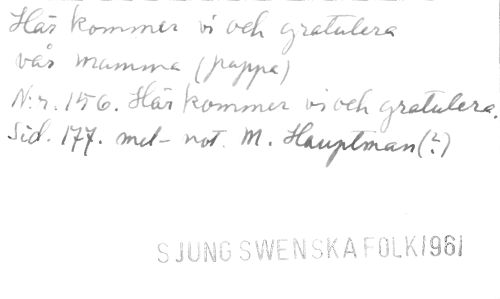 Här kommer vi och gratulera
vår mamma (pappa)
N:r. 156. Här kommer vi och gratulera.
Sid. 177. mel- not. M. Hauptman(?)
SJUNG SWENSKA FOLK 1961